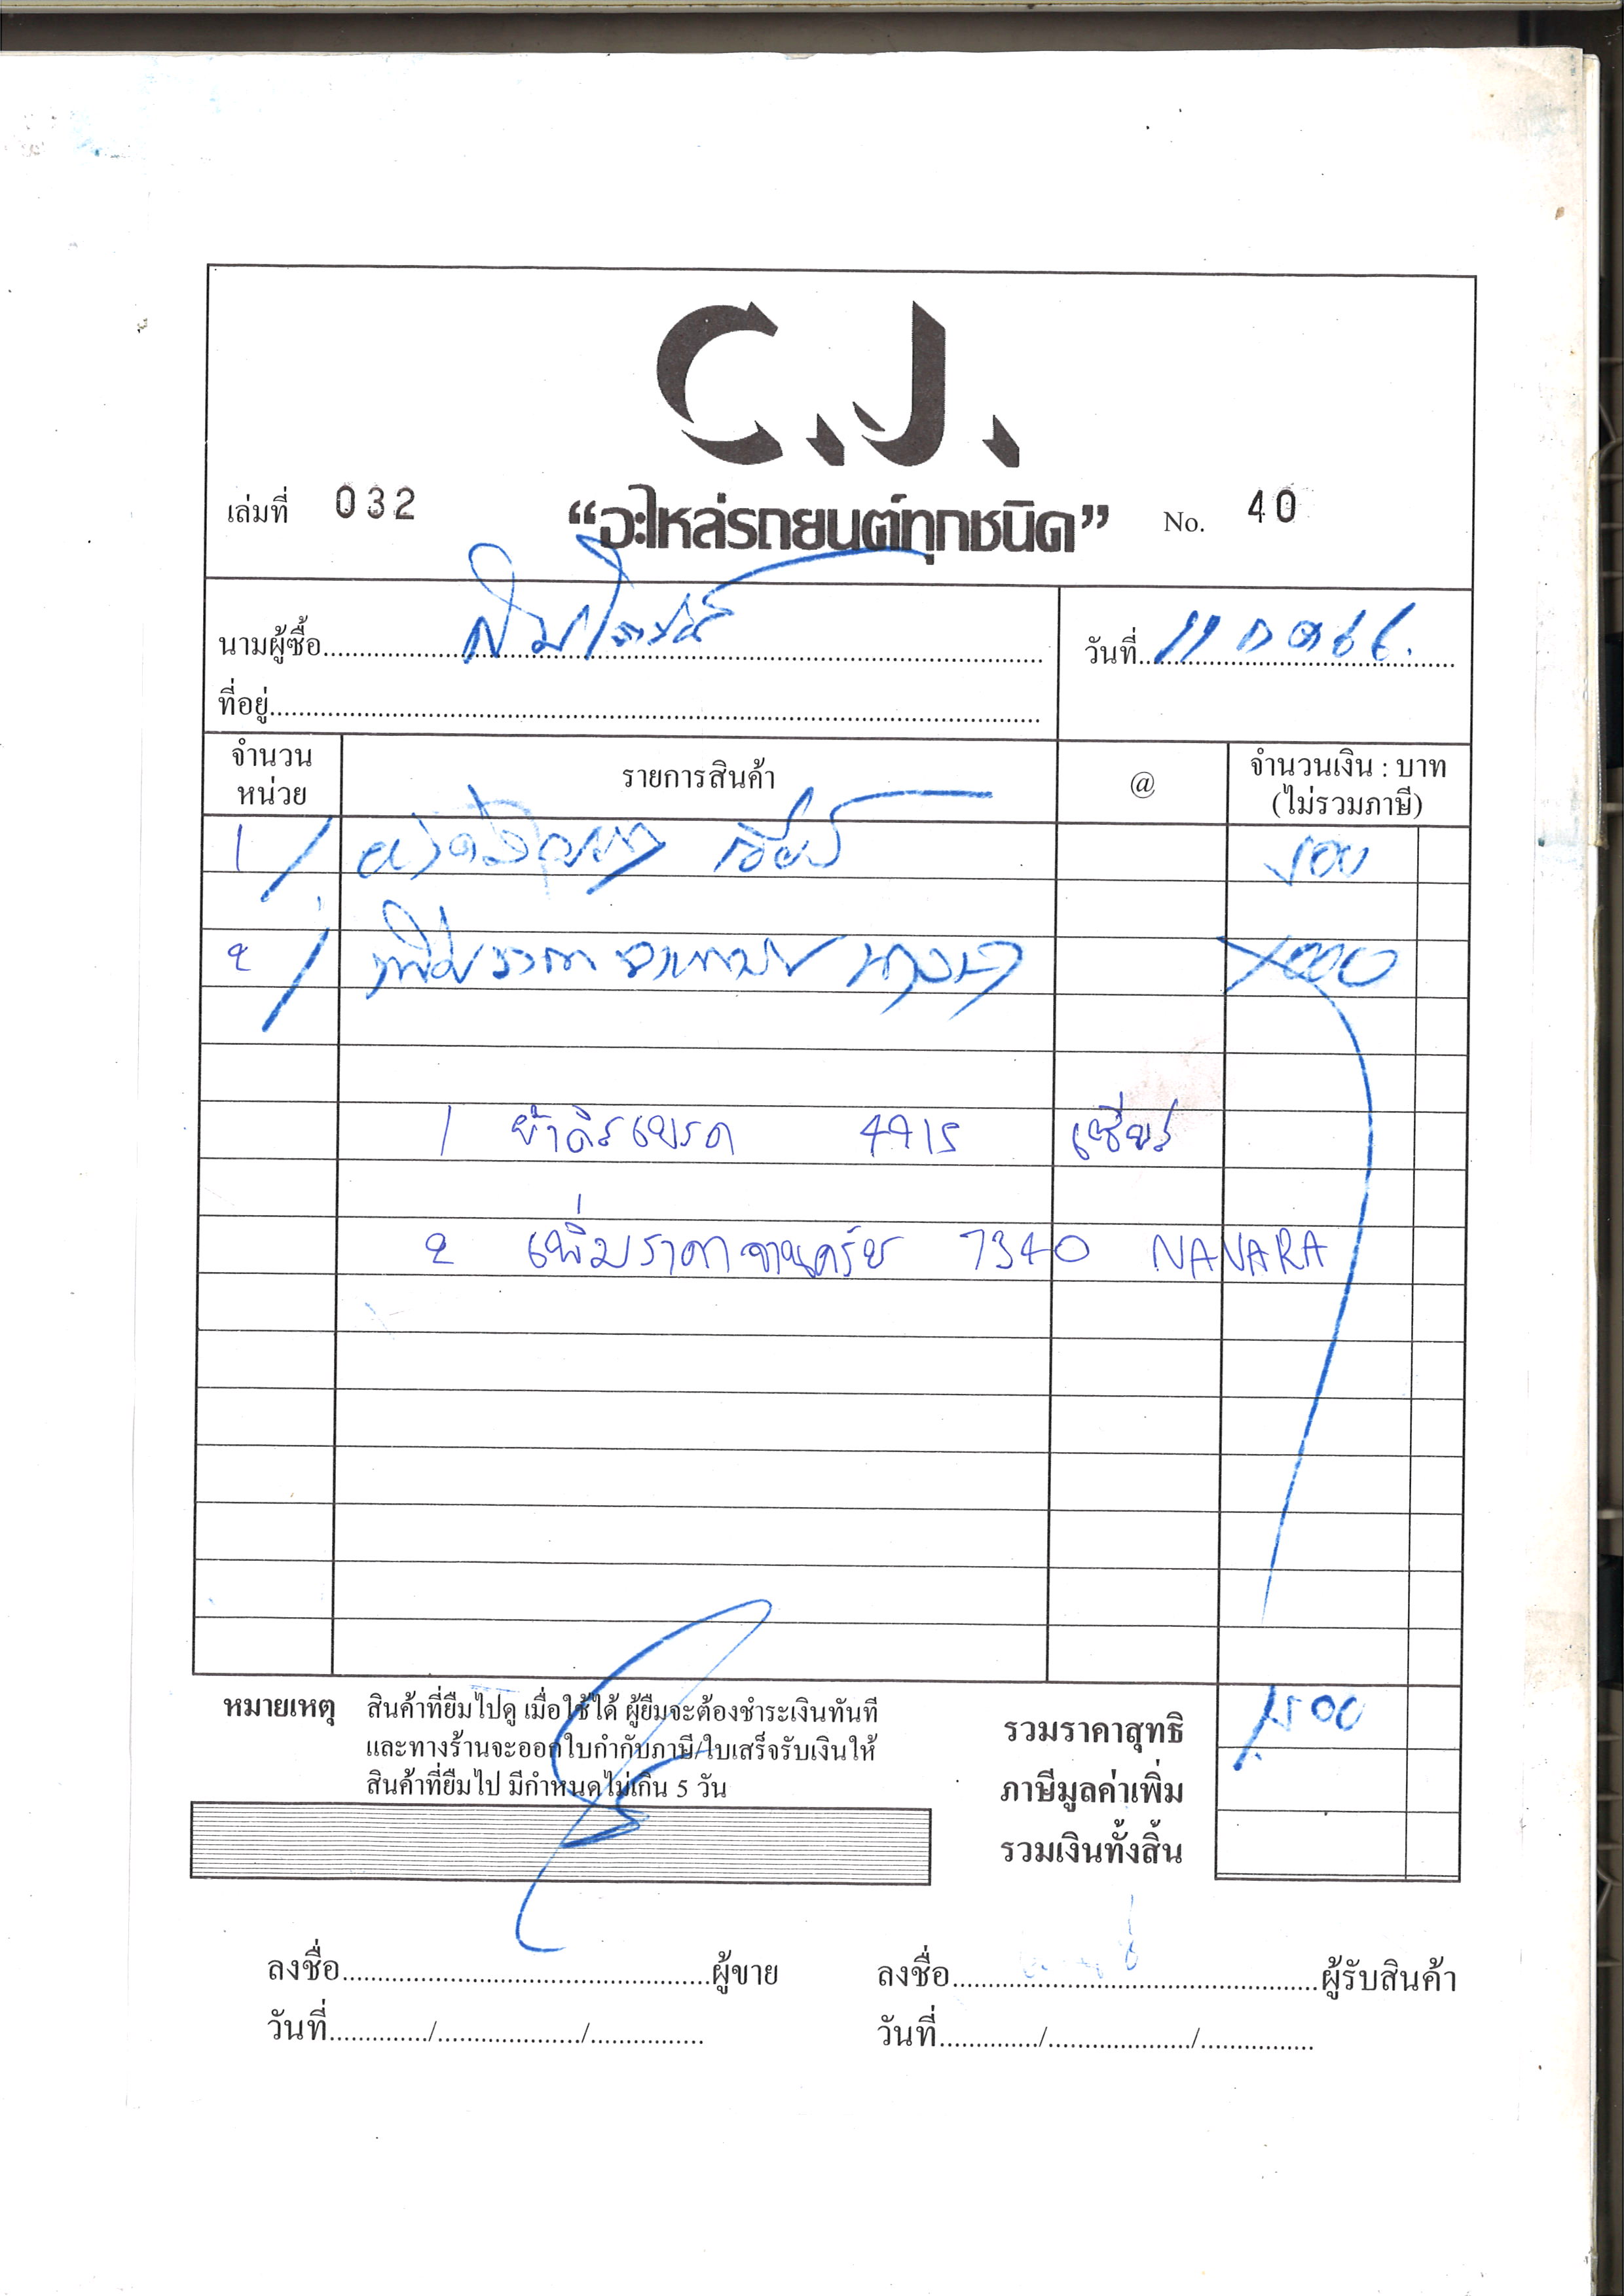 C.J.
เล่มที่ 032 “อะไหล่รถยนต์ทุกชนิด” No. 40
นามผู้ซื้อ วันที่ 11
ที่อยู่
จำนวน หน่วย รายการสินค้า @ จำนวนเงิน : บาท (ไม่รวมภาษี)
1 500
2 เพิ่มราคา 1000
1 ผ้าดิสเบรค 4415 เซียร์
2 เพิ่มราคาจานครัช 7340 NAVARA
หมายเหตุ สินค้าที่ยืมไปดู เมื่อใช้ได้ ผู้ยืมจะต้องชำระเงินทันที
และทางร้านจะออกใบกำกับภาษี/ใบเสร็จรับเงินให้
สินค้าที่ยืมไป มีกำหนดไม่เกิน 5 วัน
รวมราคาสุทธิ 1500
ภาษีมูลค่าเพิ่ม
รวมเงินทั้งสิ้น
ลงชื่อ ผู้ขาย ลงชื่อ ผู้รับสินค้า
วันที่ / / วันที่ / /